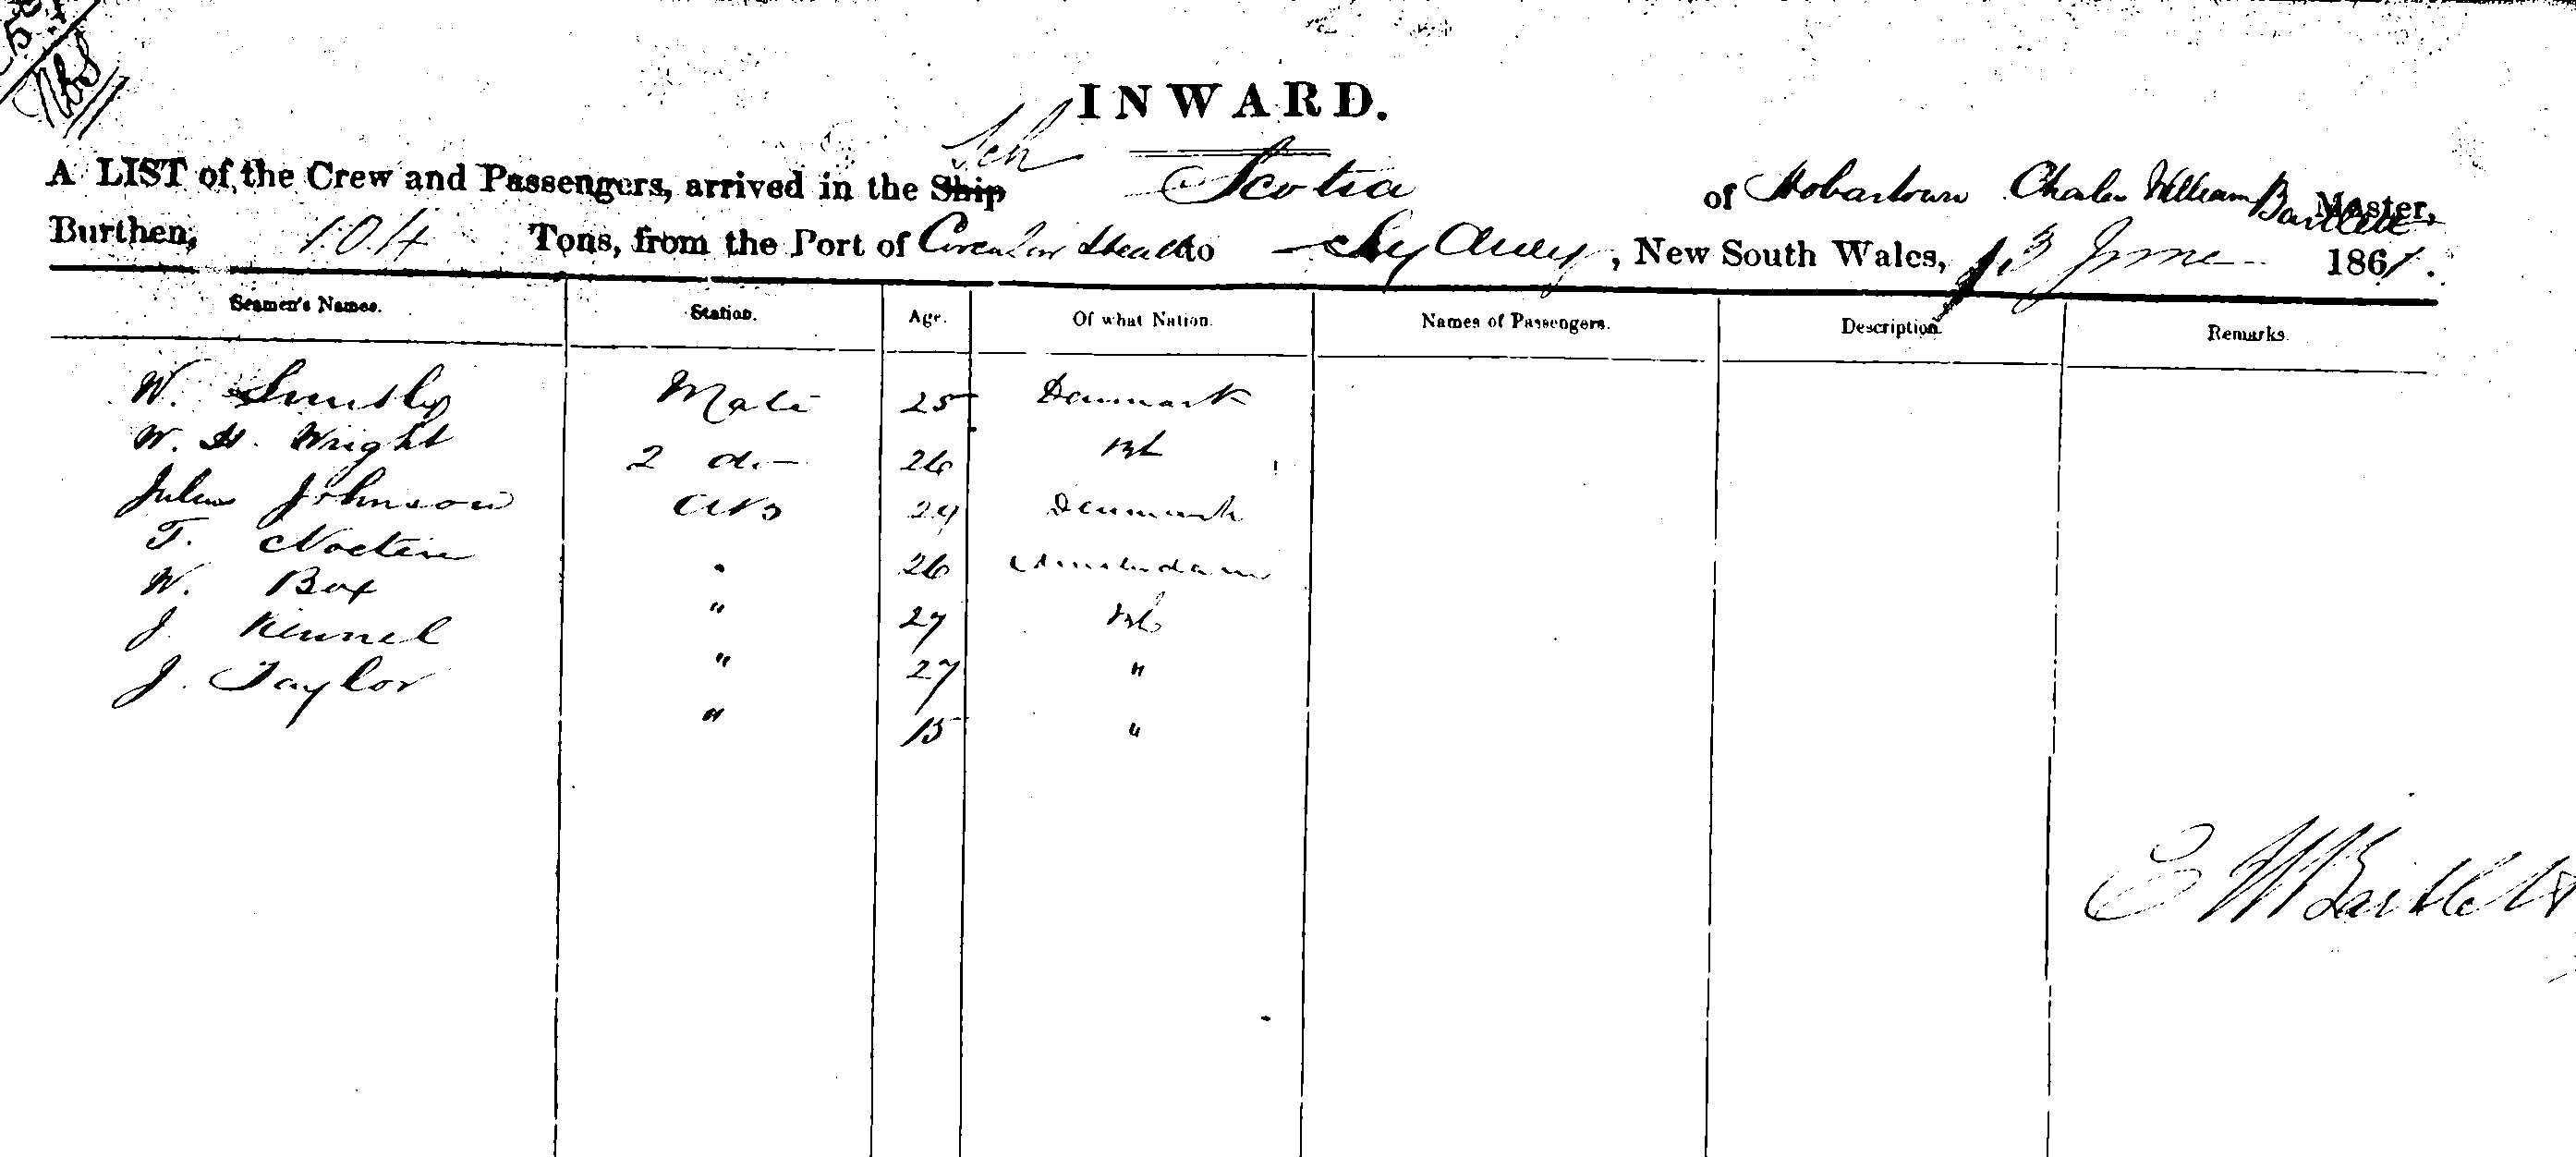 INWARD.
A LIST of the Crew and Passengers, arrived in the Ship Sch Scotia of Hobartown Charles William Bartlett Master,
Burthen, 104 Tons, from the Port of Circular Head to Sydney, New South Wales, 13 June 1861.
Seamen's Names. Station. Age. Of what Nation. Names of Passengers. Description. Remarks.
W. Mate 25 Denmark
W. H. Wright 2 do 26
Johnson AB 29 Denmark
T. 26 Amsterdam
W. Box " 27
J. Kennel " 27 "
J. Taylor " 15 "
C W Bartlett